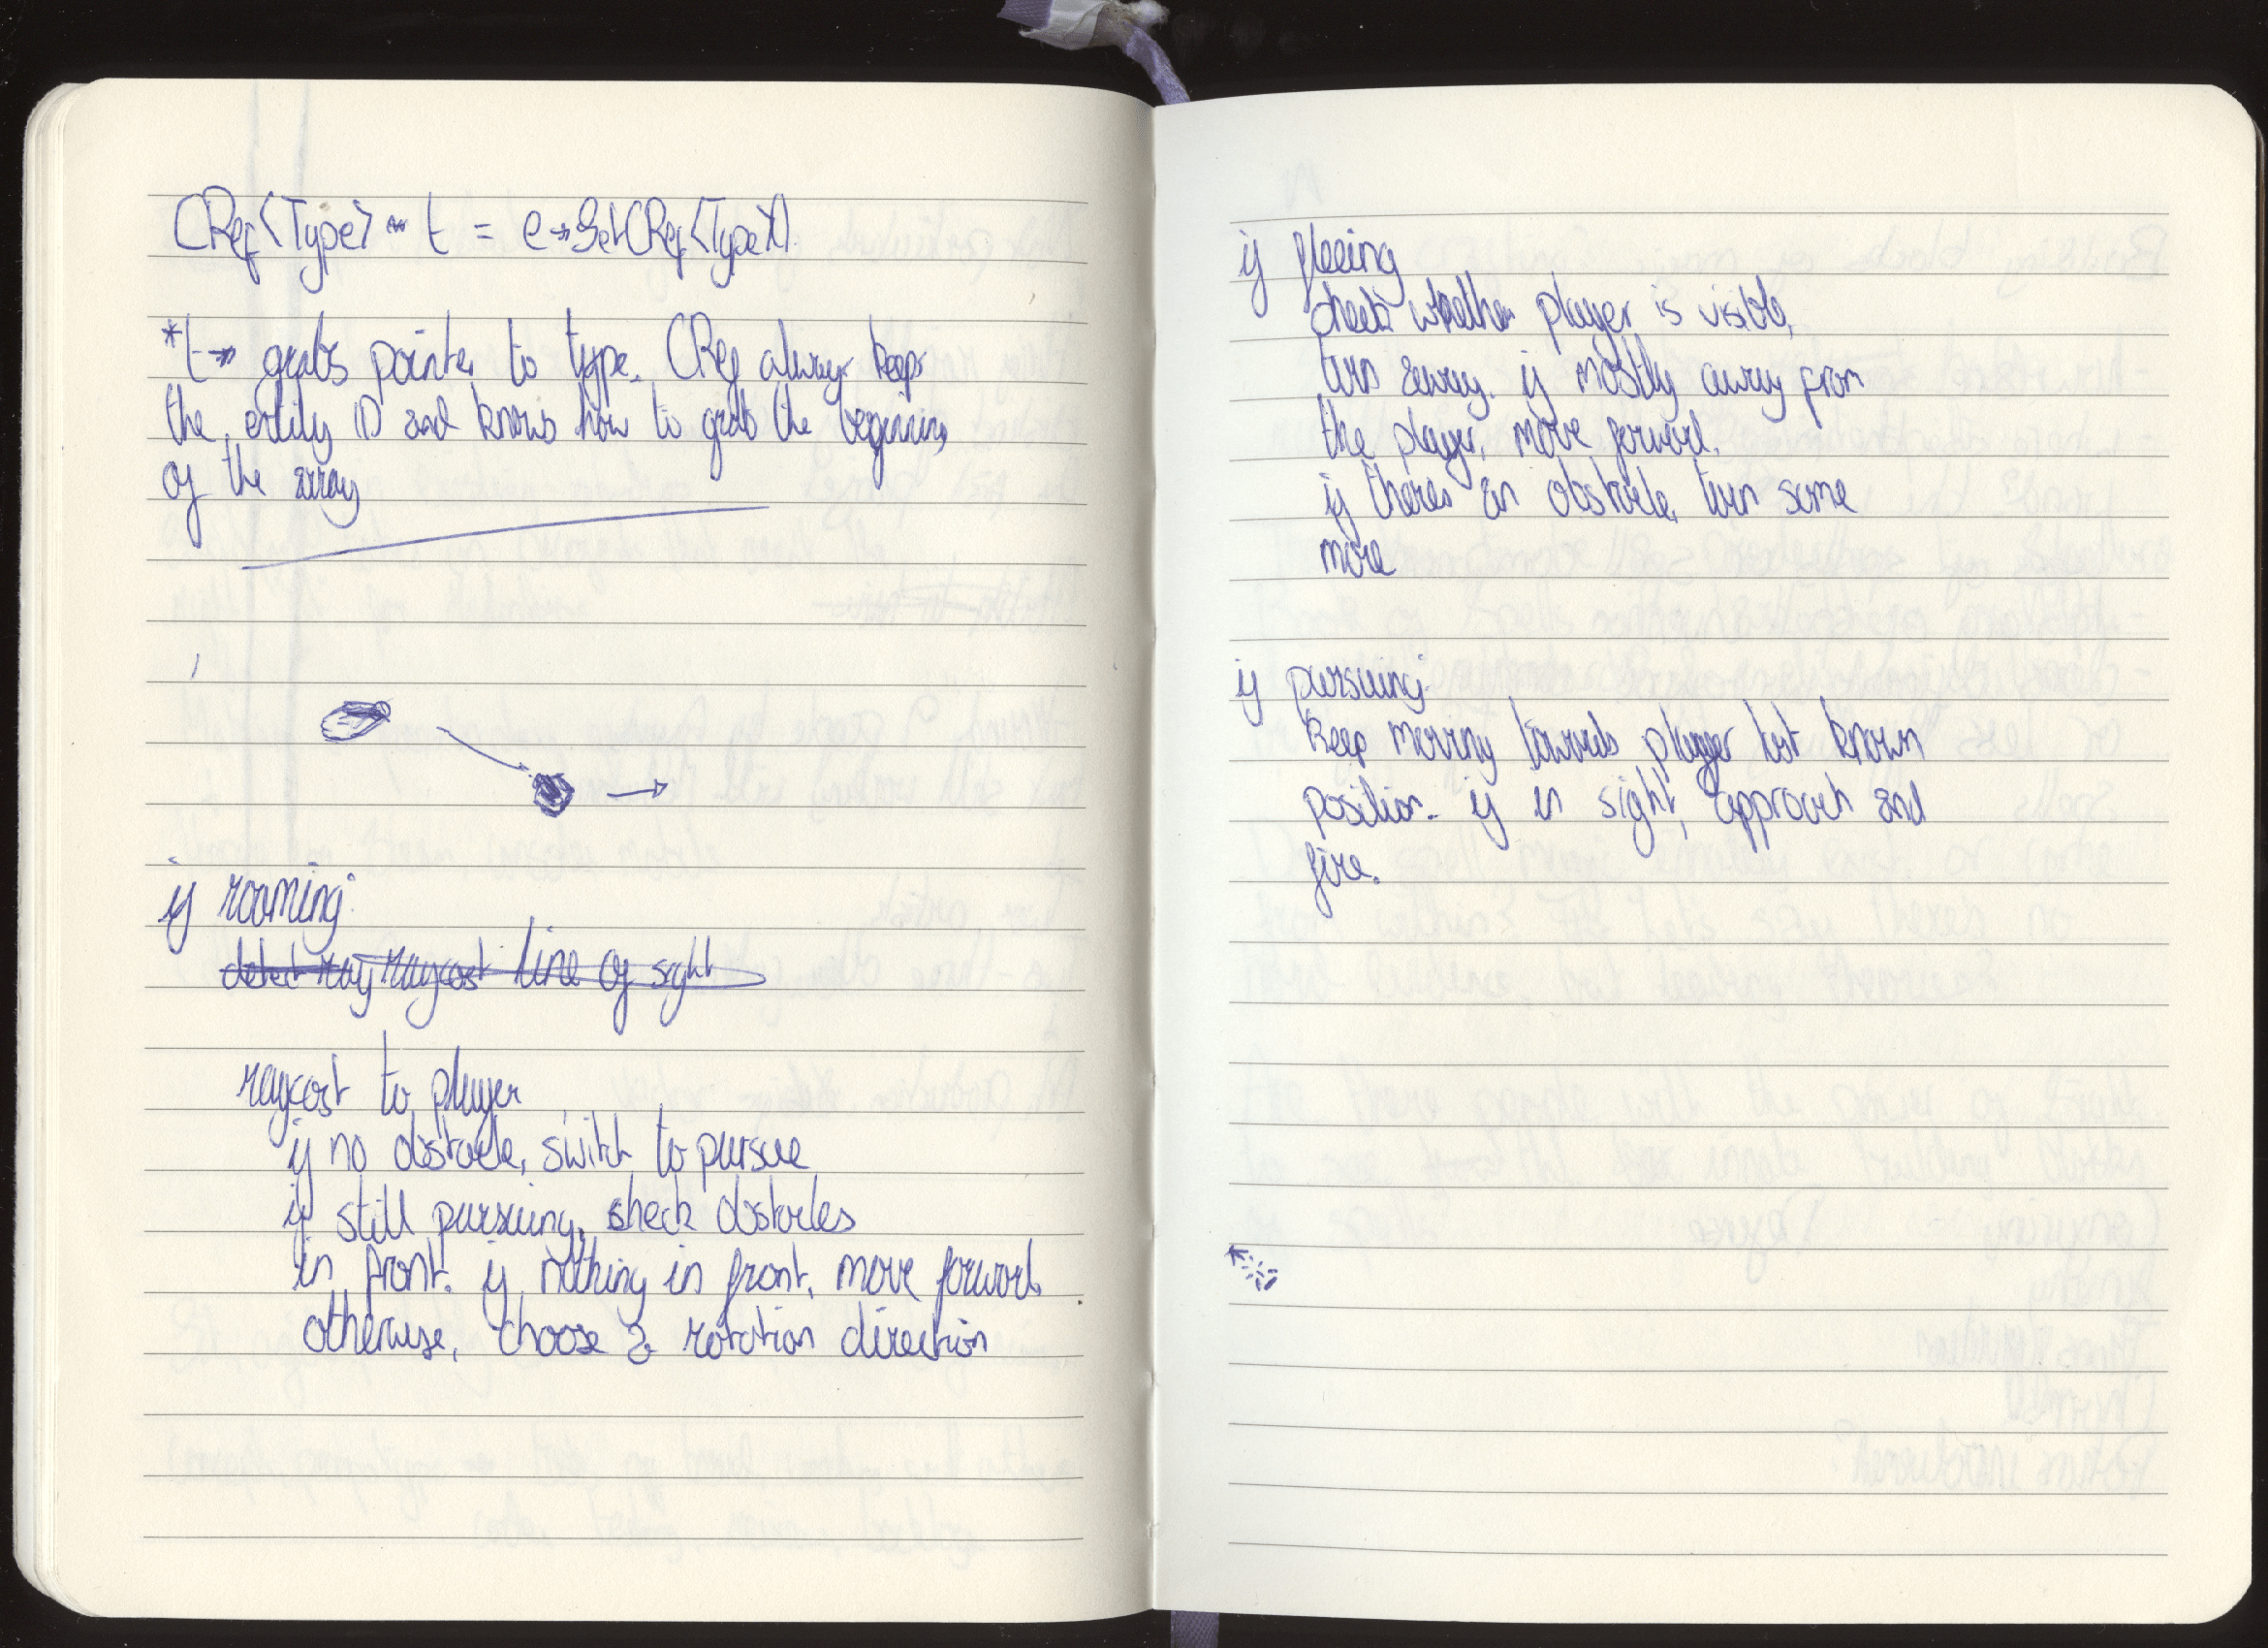 CRef<Type> t = e->GetCRef<Type>()
*t-> grabs pointer to type. CRef always keeps
the entity ID and knows how to grab the beginning
of the array
if roaming:
detect ray raycast line of sight
raycast to player
if no obstacle, switch to pursue
if still pursuing, check obstacles
in front. if nothing in front, move forward.
otherwise, choose a rotation direction
if fleeing
check whether player is visible,
turn away. if mostly away from
the player, move forward.
if theres an obstacle, turn some
more
if pursuing:
keep moving towards player last known
position. if in sight, approach and
fire.